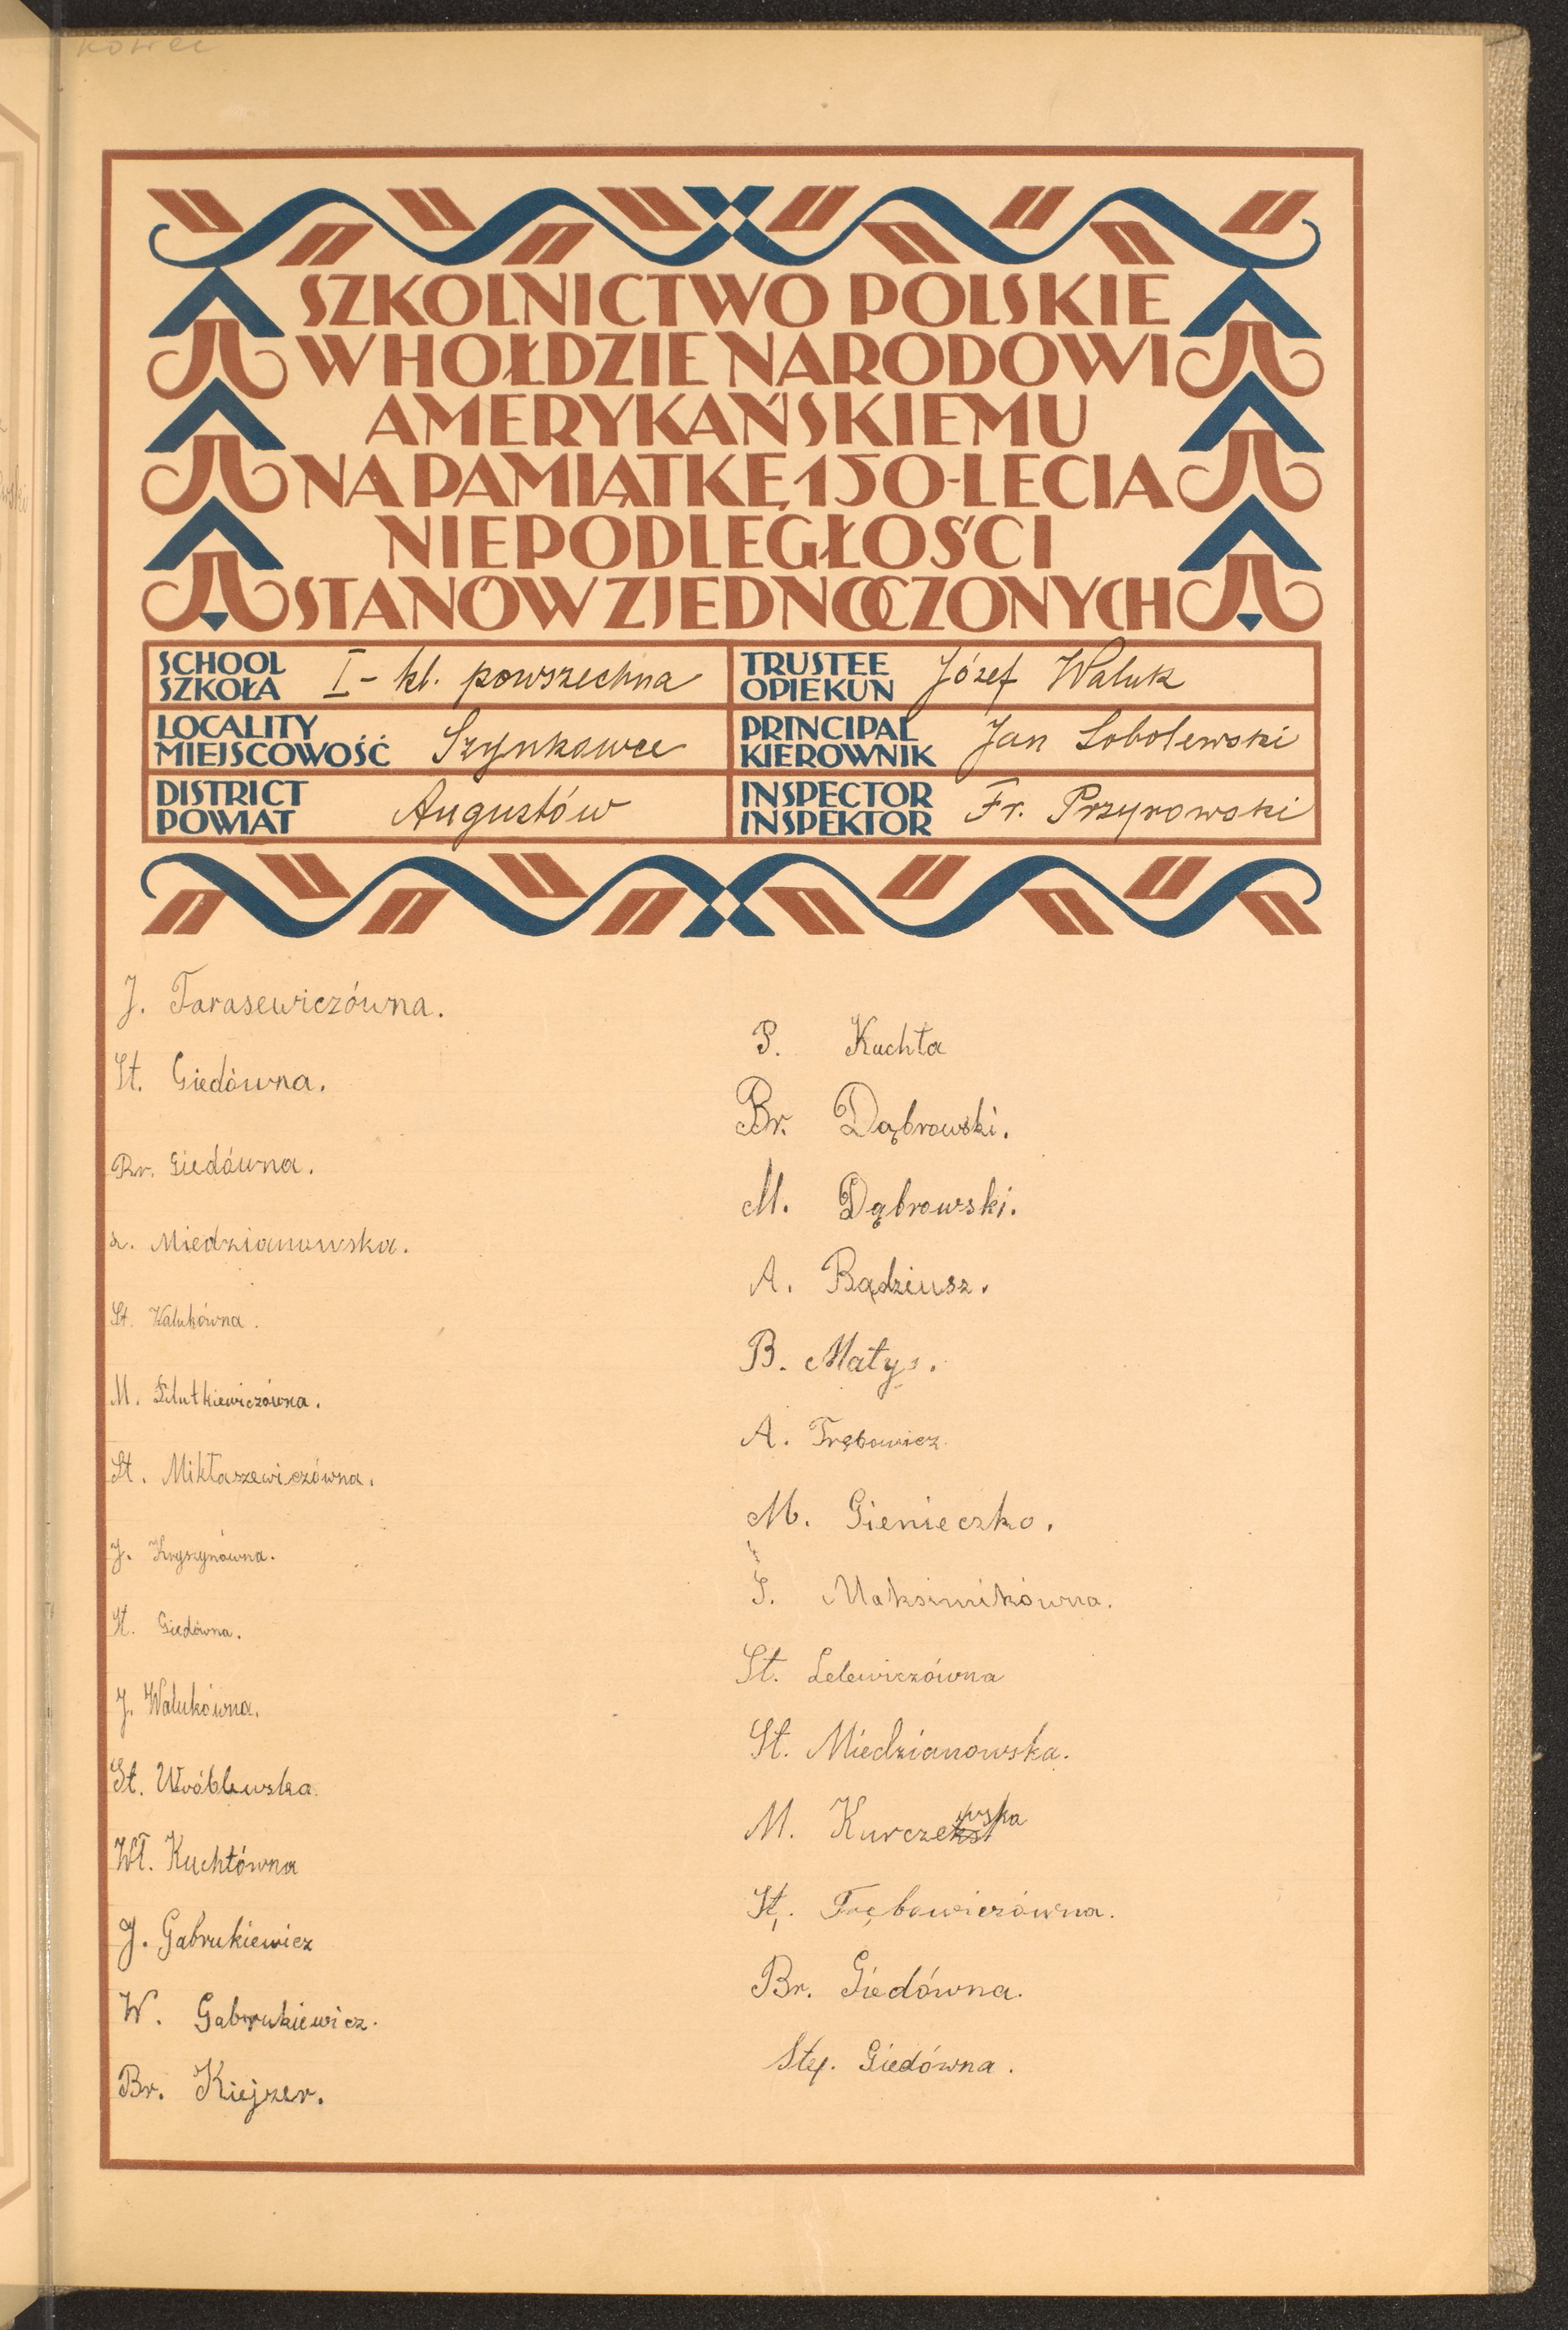 SZKOLNICTWO POLSKIE
W HOŁDZIE NARODOWI
AMERYKAŃSKIEMU
NA PAMIĄTKĘ 150-LECIA
NIEPODLEGŁOŚCI
STANÓW ZJEDNOCZONYCH
SCHOOL
SZKOŁA
I - kl. powszechna
TRUSTEE
OPIEKUN
Józef Waluk
LOCALITY
MIEJSCOWOŚĆ
Szynkowce
PRINCIPAL
KIEROWNIK
Jan Sobolewski
DISTRICT
POWIAT
Augustów
INSPECTOR
INSPEKTOR
Fr. Przyrowski
J. Tarasewiczówna.
St. Giedówna.
Br. Giedówna.
Miedzianowska.
St. Walukówna.
M. Filutkiewiczówna.
St. Mikłaszewiczówna.
J. Kryszynówna.
K. Giedówna.
J. Walukówna.
St. Wróblewska
Wł. Kuchtówna
J. Gabrukiewicz
W. Gabrukiewicz.
Br. Kiejzer.
P. Kuchta
Br. Dąbrowski.
M. Dąbrowski.
A. Bądziusz.
B. Matys.
A. Trębowicz
M. Gienieczko.
Maksimikówna.
St. Lelewiczówna
St. Miedzianowska.
M. Kurczewska
St. Trębowiczówna.
Br. Giedówna.
Stef. Giedówna.